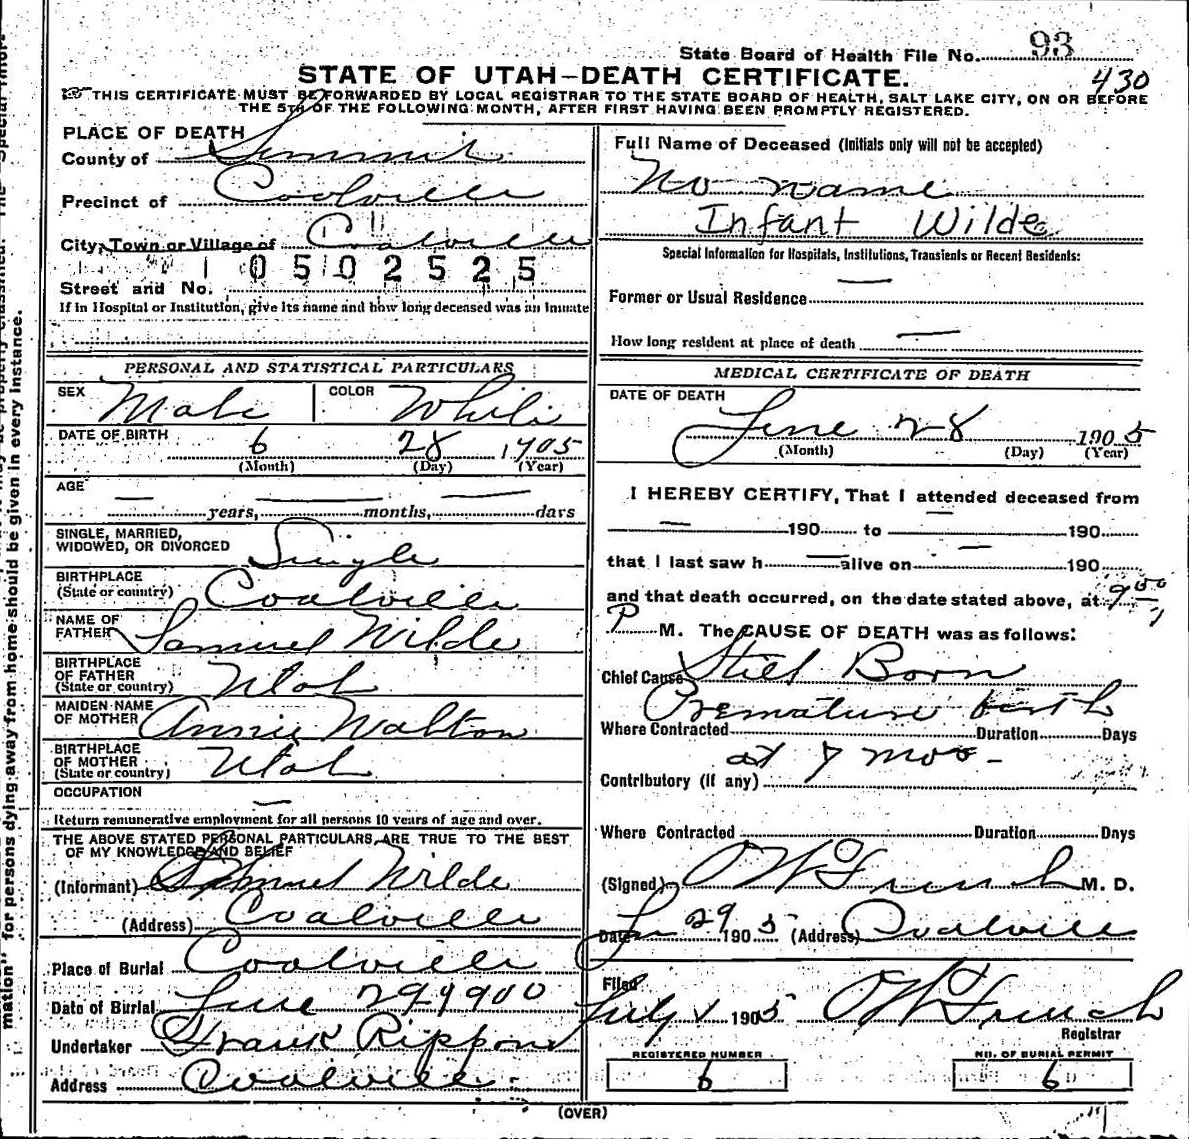 State Board of Health File No. 93
430
STATE OF UTAH—DEATH CERTIFICATE.
THIS CERTIFICATE MUST BE FORWARDED BY LOCAL REGISTRAR TO THE STATE BOARD OF HEALTH, SALT LAKE CITY, ON OR BEFORE
THE 5TH OF THE FOLLOWING MONTH, AFTER FIRST HAVING BEEN PROMPTLY REGISTERED.
PLACE OF DEATH
County of Summit
Precinct of Coalville
City, Town or Village of Coalville
0502525
Street and No.
If in Hospital or Institution, give its name and how long deceased was an inmate
PERSONAL AND STATISTICAL PARTICULARS
SEX Male COLOR White
DATE OF BIRTH 6 28 1905
(Month) (Day) (Year)
AGE
— years, — months, — days
SINGLE, MARRIED,
WIDOWED, OR DIVORCED Single
BIRTHPLACE
(State or country) Coalville
NAME OF
FATHER Samuel Wilde
BIRTHPLACE
OF FATHER
(State or country) Utah
MAIDEN NAME
OF MOTHER Annie Walton
BIRTHPLACE
OF MOTHER
(State or country) Utah
OCCUPATION —
Return remunerative employment for all persons 10 years of age and over.
THE ABOVE STATED PERSONAL PARTICULARS ARE TRUE TO THE BEST
OF MY KNOWLEDGE AND BELIEF
(Informant) Samuel Wilde
(Address) Coalville
Place of Burial Coalville
Date of Burial June 29 1900
Undertaker Frank Rippon
Address Coalville
Full Name of Deceased (Initials only will not be accepted)
No name
Infant Wilde
Special Information for Hospitals, Institutions, Transients or Recent Residents:
Former or Usual Residence —
How long resident at place of death —
MEDICAL CERTIFICATE OF DEATH
DATE OF DEATH
June 28 1905
(Month) (Day) (Year)
I HEREBY CERTIFY, That I attended deceased from
— 190 to — 190
that I last saw h — alive on — 190
and that death occurred, on the date stated above, at 9 00
P M. The CAUSE OF DEATH was as follows:
Chief Cause Still Born
Premature birth
Where Contracted Duration Days
at 7 mos -
Contributory (if any)
Where Contracted Duration Days
(Signed) O W French M. D.
Date Ju 29 1905 (Address) Coalville
Filed
July 1 1905 O W French
Registrar
REGISTERED NUMBER
6
NO. OF BURIAL PERMIT
6
(OVER)
mation" for persons dying away from home should be given in every instance.